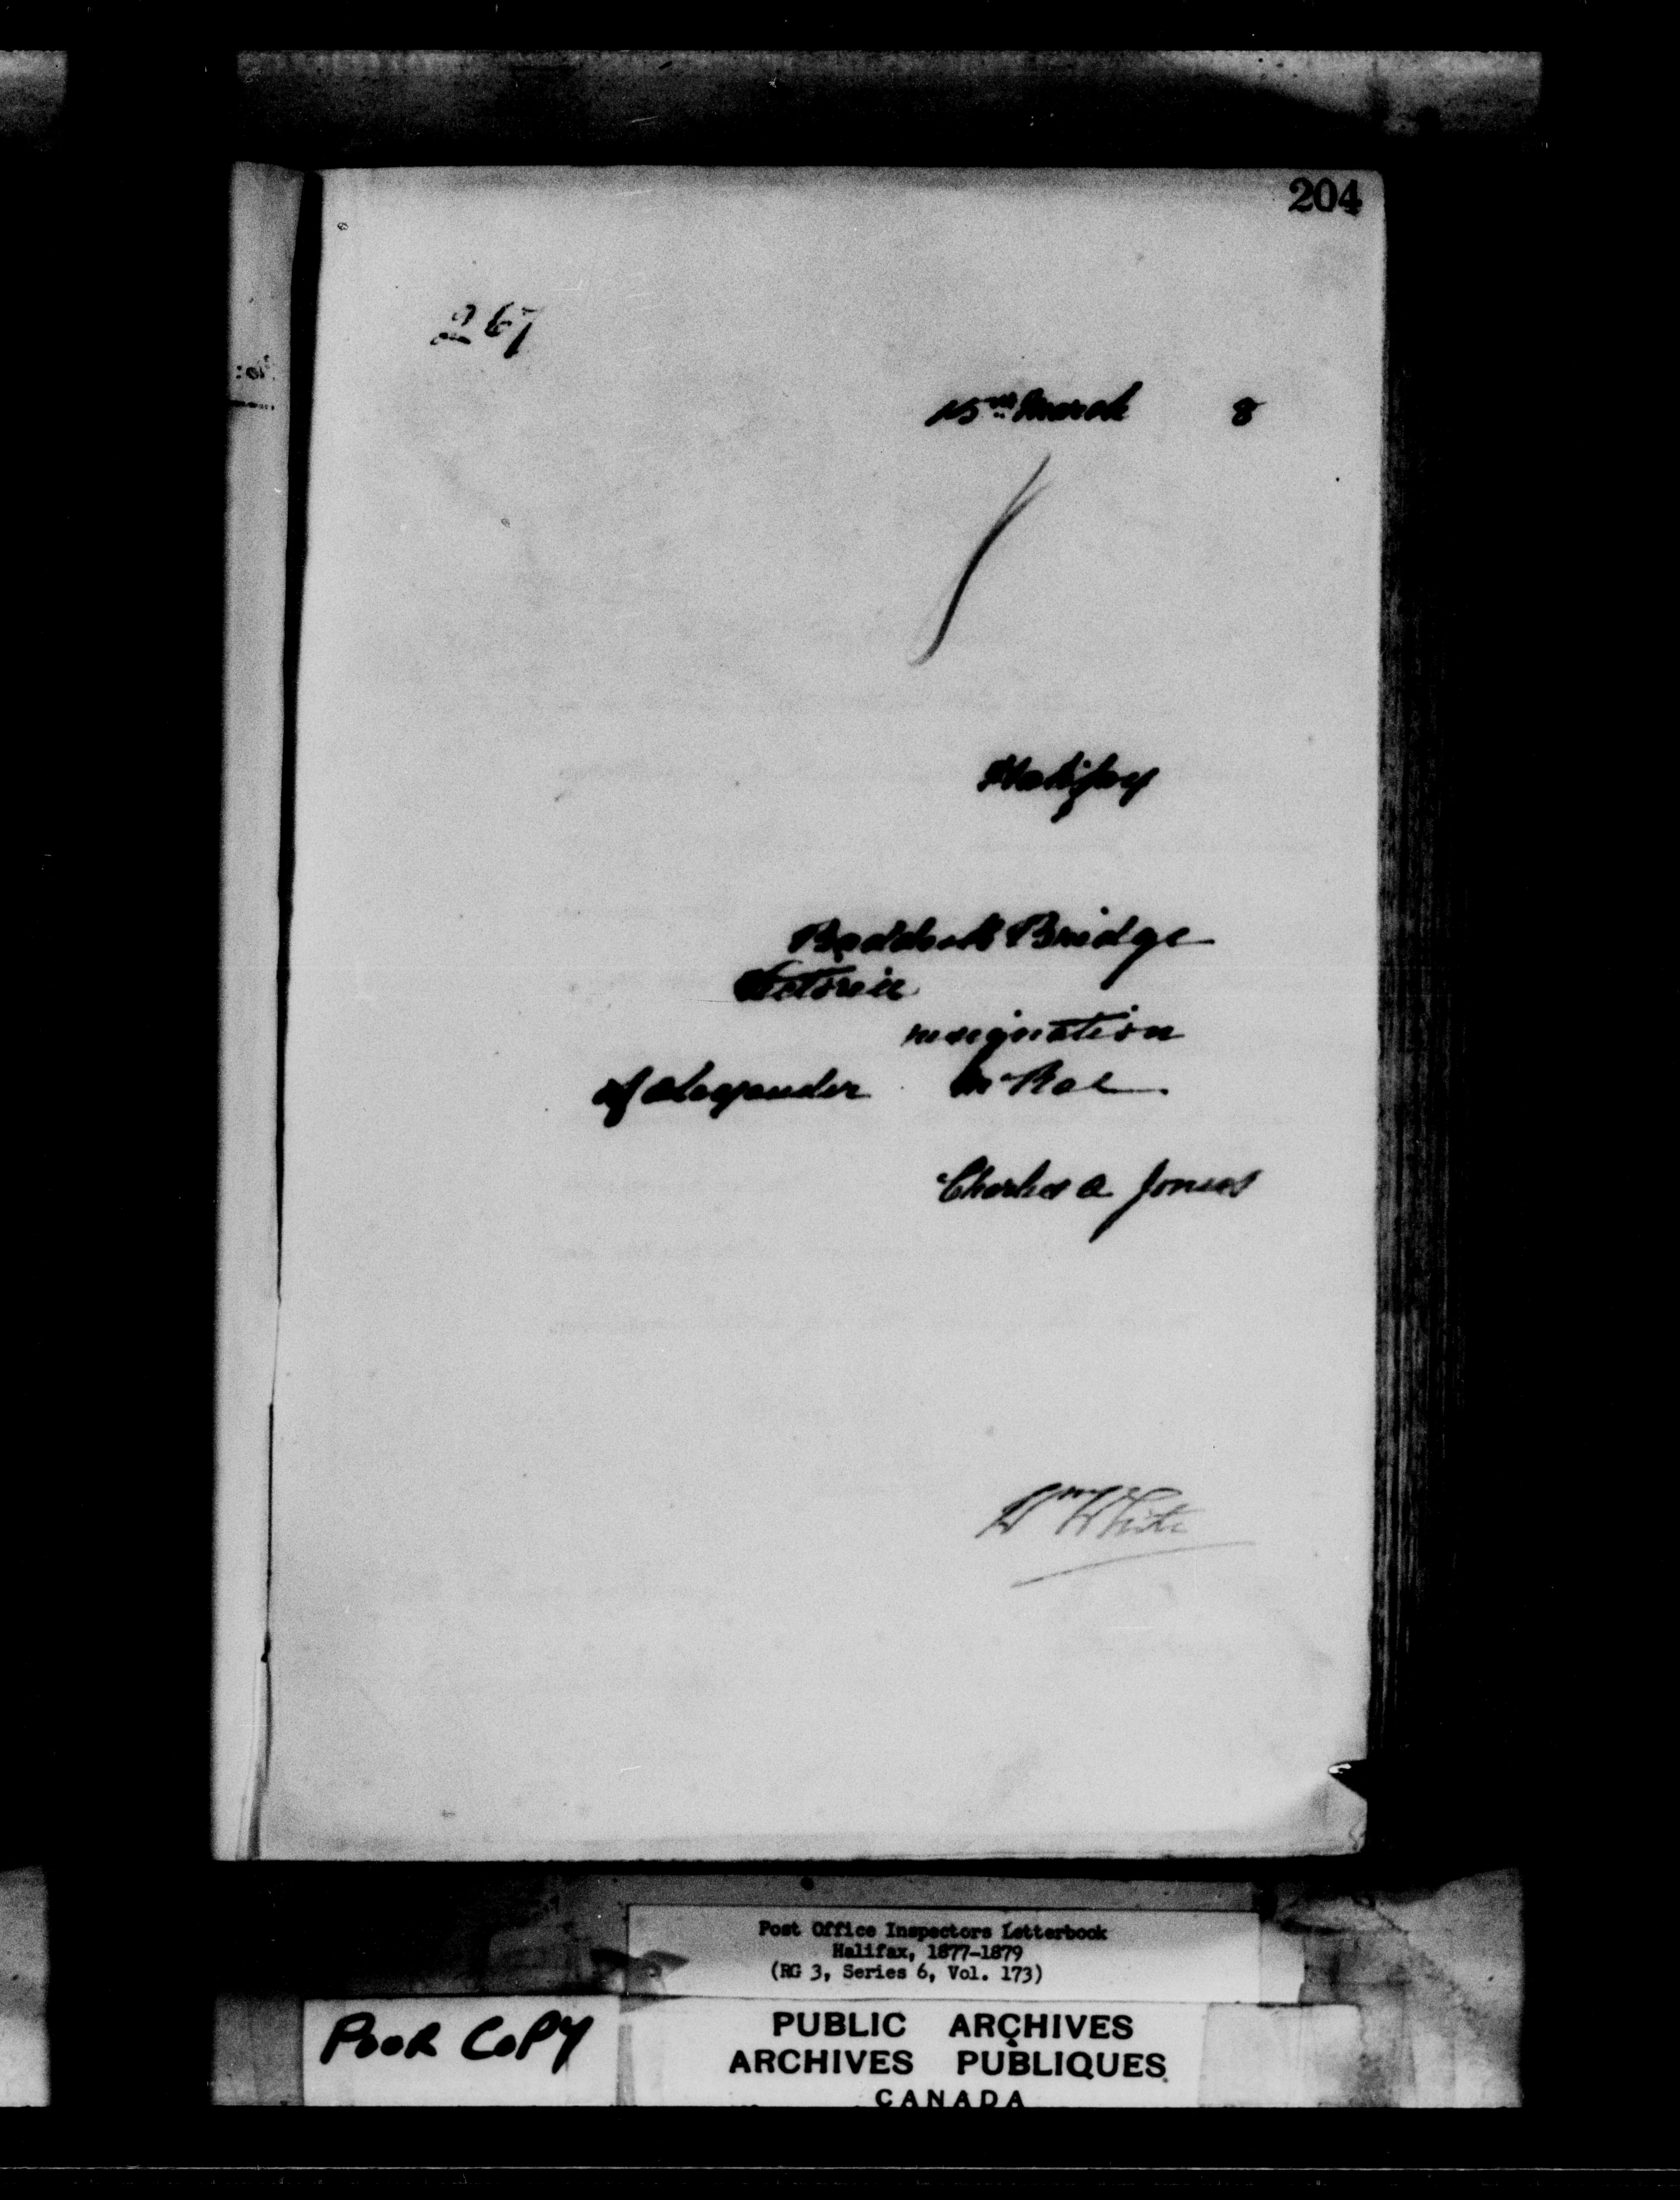 204
267
15th March 8
Halifax
Baddeck Bridge
Victoria
resignation
of Alexander McRae
Charles A Jones
Wm White
Post Office Inspectors Letterbook
Halifax, 1877-1879
(RG 3, Series 6, Vol. 173)
Poor Copy
PUBLIC ARCHIVES
ARCHIVES PUBLIQUES
CANADA